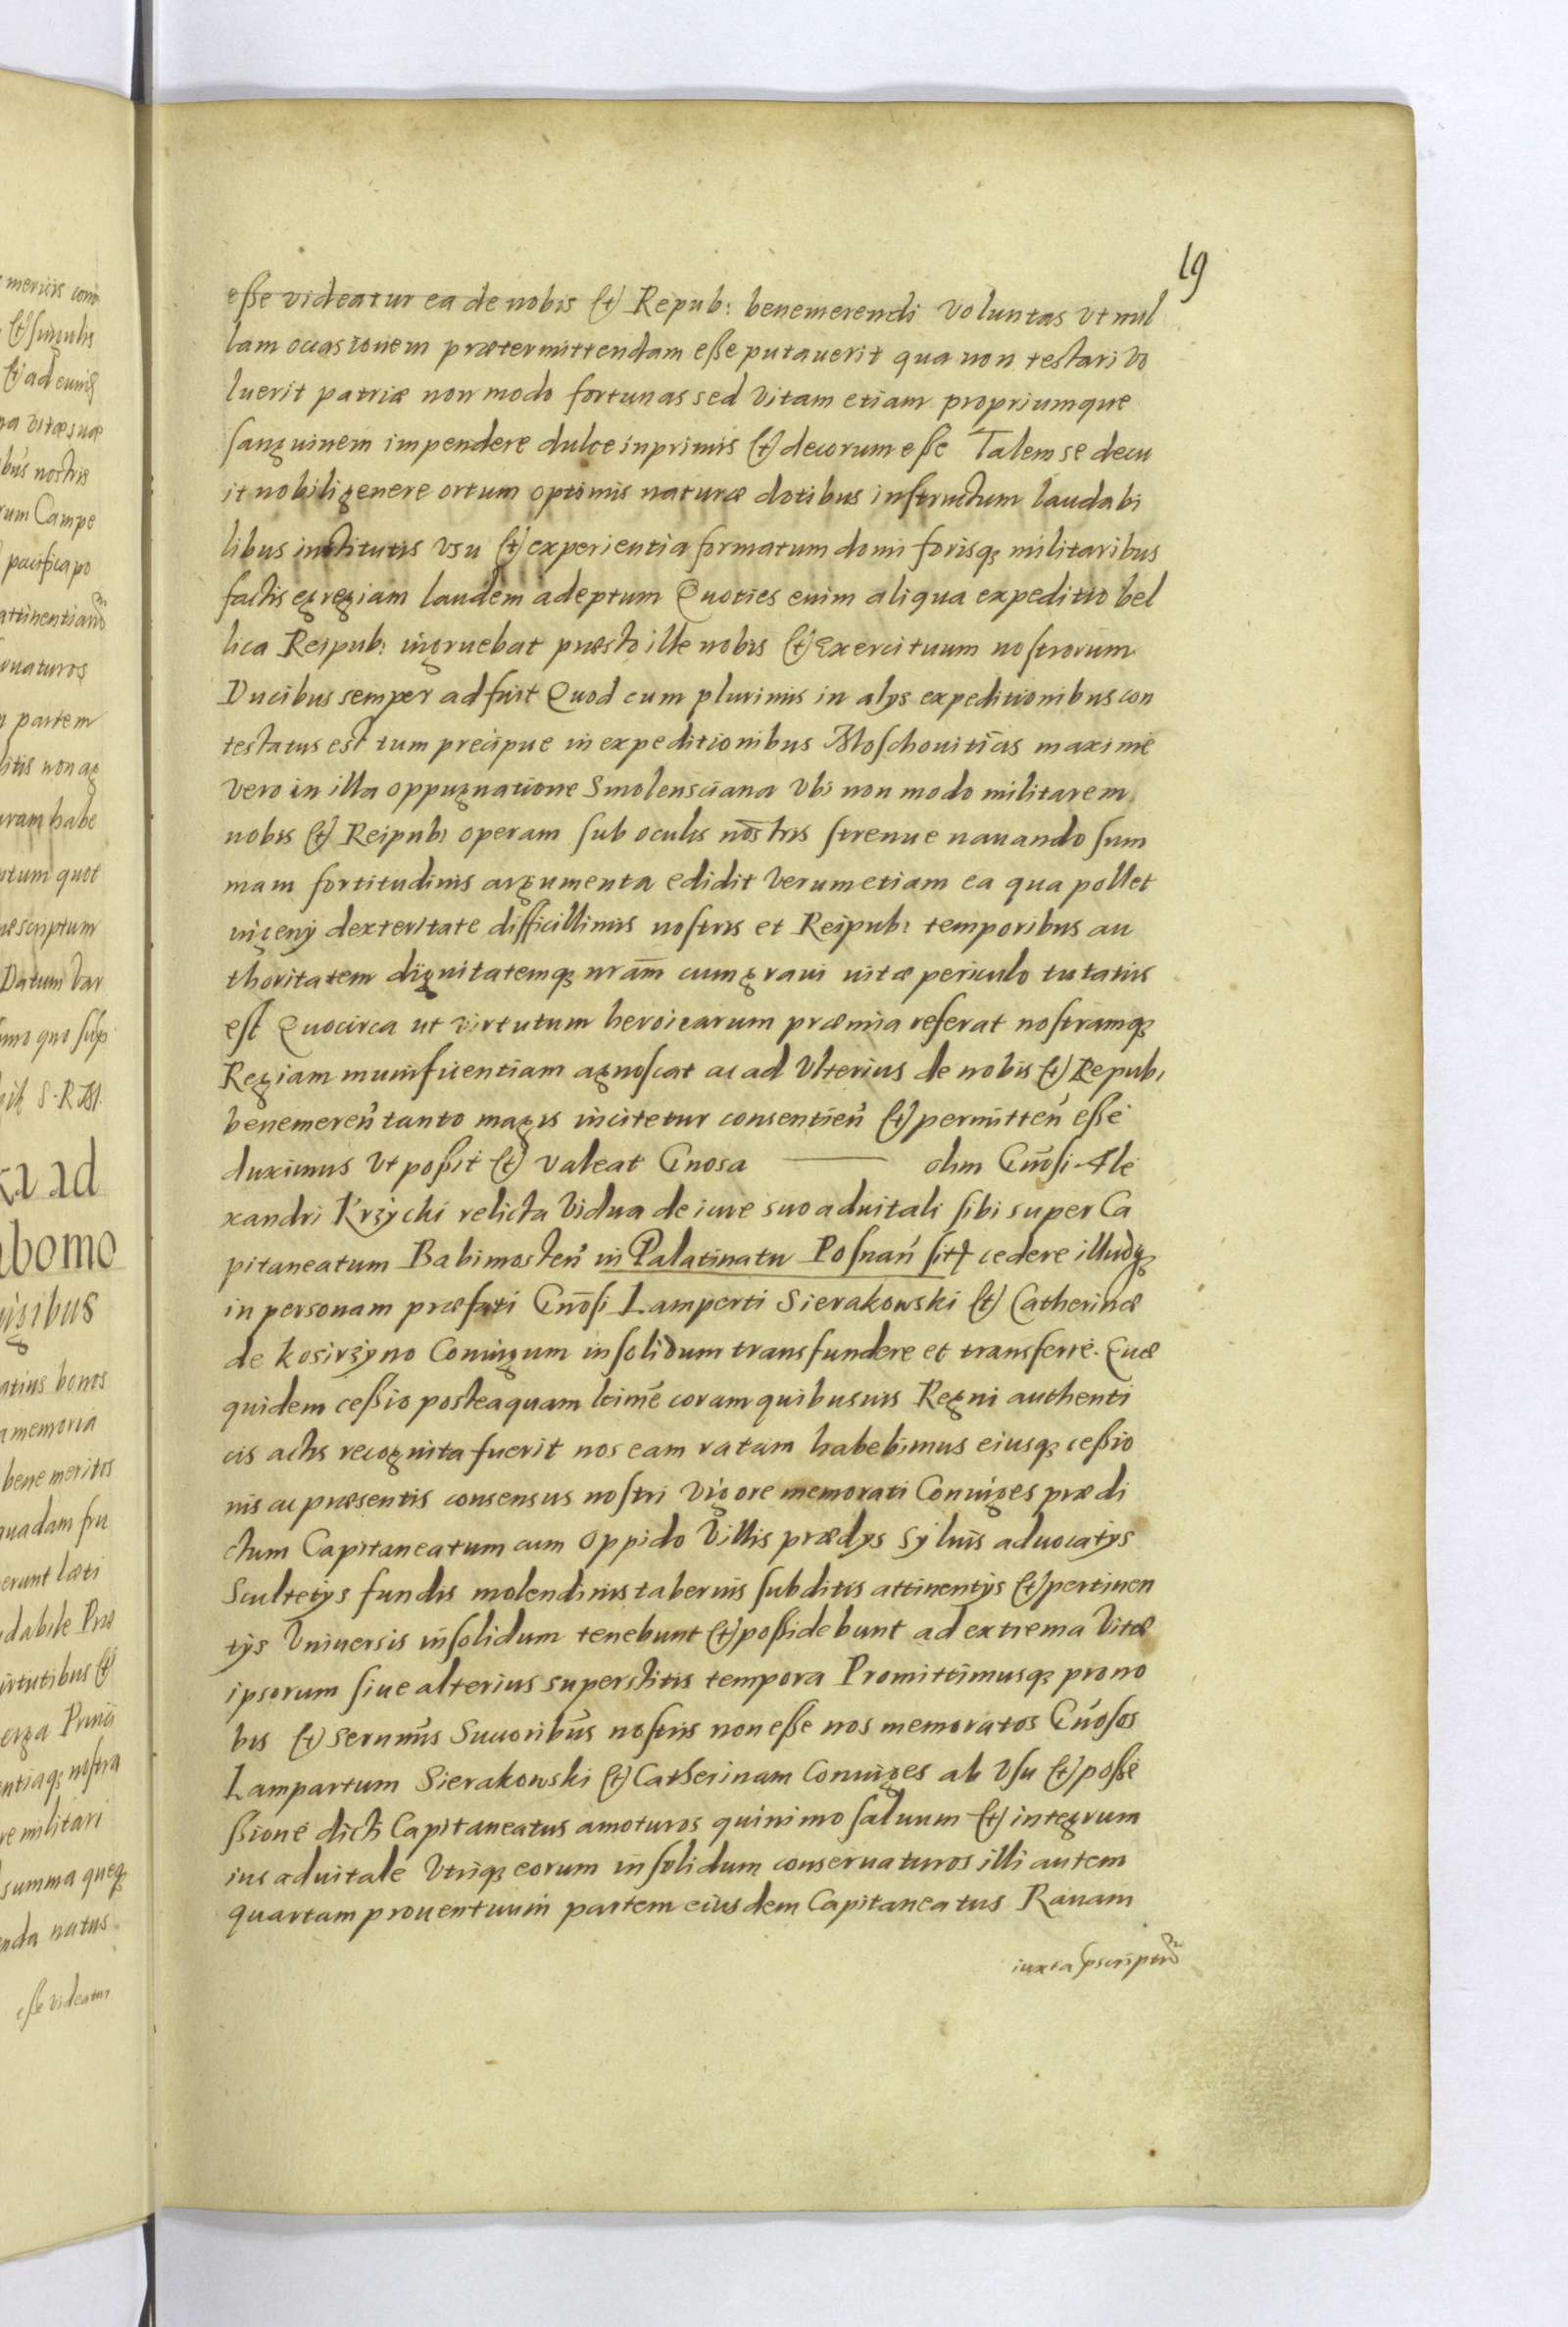 19
esse videatur ea de nobis et Repub: benemerendi voluntas vt nul
lam occasionem prætermittendam esse putauerit qua non testari vo
luerit patriæ non modo fortunas sed vitam etiam propriumque
sanguinem impendere dulce inprimis et decorum esse Talem se decu
it nobili genere ortum optimis naturæ dotibus instructum laudabi
libus institutis vsu et experientia formatum domi forisq; militaribus
factis egregiam laudem adeptum Quoties enim aliqua expeditio bel
lica Reipub: ingruebat præsto ille nobis et exercituum nostrorum
Ducibus semper adfuit Quod cum plurimis in alijs expeditionibus con
testatus est tum precipue in expeditionibus Moschouiticis maxime
vero in illa oppugnatione Smolensciana Vbi non modo militarem
nobis et Reipub: operam sub oculis nostris strenue nauando sum
mam fortitudinis argumenta edidit verumetiam ea qua pollet
ingenij dexteritate difficillimis nostris et Reipub: temporibus au
thoritatem dignitatemq; nram cum graui uitæ periculo tutatus
est Quocirca ut virtutum heroicarum præmia referat nostramq;
Regiam munificentiam agnoscat ac ad Vlterius de nobis et Repub:
benemeren tanto magis incitetur consentien et permitten esse
duximus Vt possit et valeat Gnosa — olim Gnosi Ale
xandri Krzycki relicta Vidua de iure suo aduitali sibi super Ca
pitaneatum Babimosten in Palatinatu Posnan sit cedere illudq;
in personam præfati Gnosi Lamperti Sierakowski et Catherinæ
de Kosirzyno Coniugum insolidum transfundere et transferre. Quæ
quidem cessio posteaquam ltime coram quibusuis Regni authenti
cis actis recognita fuerit nos eam ratam habebimus eiusq; cessio
nis ac præsentis consensus nostri vigore memorati Coniuges prædi
ctum Capitaneatum cum Oppido Villis prædijs syluis aduocatijs
Scultetijs fundis molendinis tabernis subditis attinentijs et pertinen
tijs Vniuersis insolidum tenebunt et possidebunt ad extrema Vitæ
ipsorum siue alterius superstitis tempora Promittimusq; pro no
bis et Sernmis Succoribus nostris non esse nos memoratos Gnosos
Lampartum Sierakowski et Catherinam Coniuges ab Vsu et posse
ssione dicti Capitaneatus amoturos quinimo saluum et integrum
ius aduitale Vtriq; eorum insolidum conseruaturos illi autem
quartam prouentuum partem eiusdem Capitaneatus Rauam
iuxta pscriptum